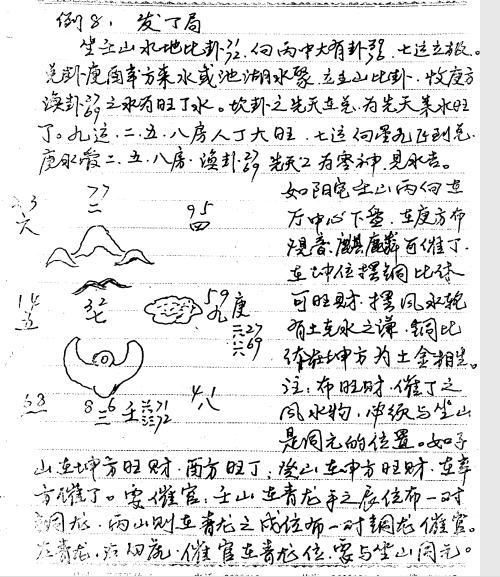 例8: 发丁局
坐壬山水地比卦 7/2, 向丙中大有卦 3/7, 七运立极。
兑卦庚酉辛方来水或池湖水聚, 立壬山比卦, 收庚方
涣卦 2/6 9 之水有旺丁水。坎卦之先天在兑, 为先天来水旺
丁。九运, 二、五、八房人丁大旺, 七运向星九飞到兑,
庚水管二、五、八房, 涣卦 先天2为零神, 见水吉。
如阳宅壬山丙向在
厅中心下盘, 在庚方布
观音, 麒麟可催丁,
在坤位摆铜
可旺财, 摆风水轮
有土克水之谦, 铜
坤方为土金相生。
注: 布旺财、催丁之
风水物, 必须与坐山
是同元的位置。如子
山在坤方旺财, 酉方旺丁; 癸山在申方旺财, 在辛
方催丁。要催官, 壬山在青龙手之辰位布一对
铜龙, 丙山则在青龙之戌位布一对铜龙催官。
左青龙, 右白虎, 催官在青龙位, 要与坐山同元。
3
六
77
二
95
四
14
五
32
七
59
九
庚
27
69
68
86
三
壬
71
72
41
八